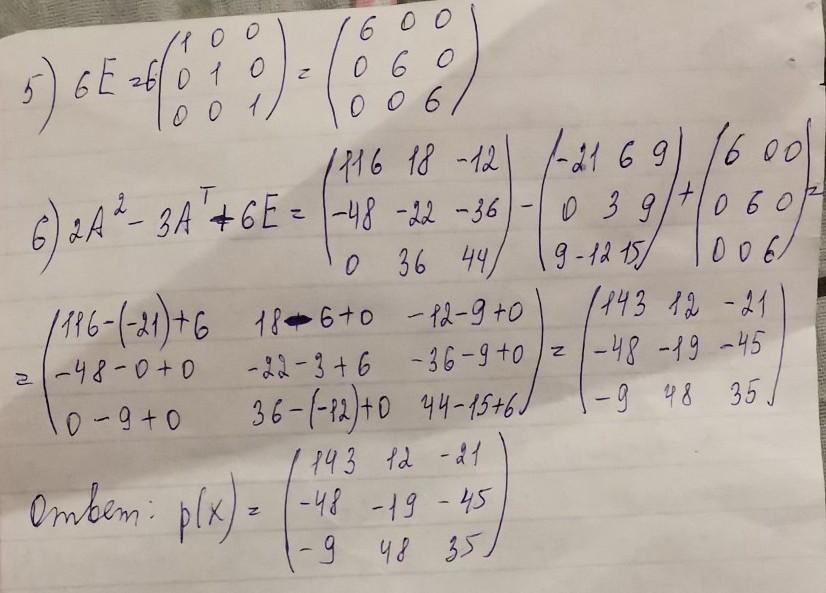 5) 6E = 6 (1 0 0
0 1 0
0 0 1) = (6 0 0
0 6 0
0 0 6)
6) 2A² - 3Aᵀ + 6E = (116 18 -12
-48 -22 -36
0 36 44) - (-21 6 9
0 3 9
9 -12 15) + (6 0 0
0 6 0
0 0 6) =
= (116-(-21)+6 18-6+0 -12-9+0
-48-0+0 -22-3+6 -36-9+0
0-9+0 36-(-12)+0 44-15+6) = (143 12 -21
-48 -19 -45
-9 48 35)
Ответ: p(x) = (143 12 -21
-48 -19 -45
-9 48 35)